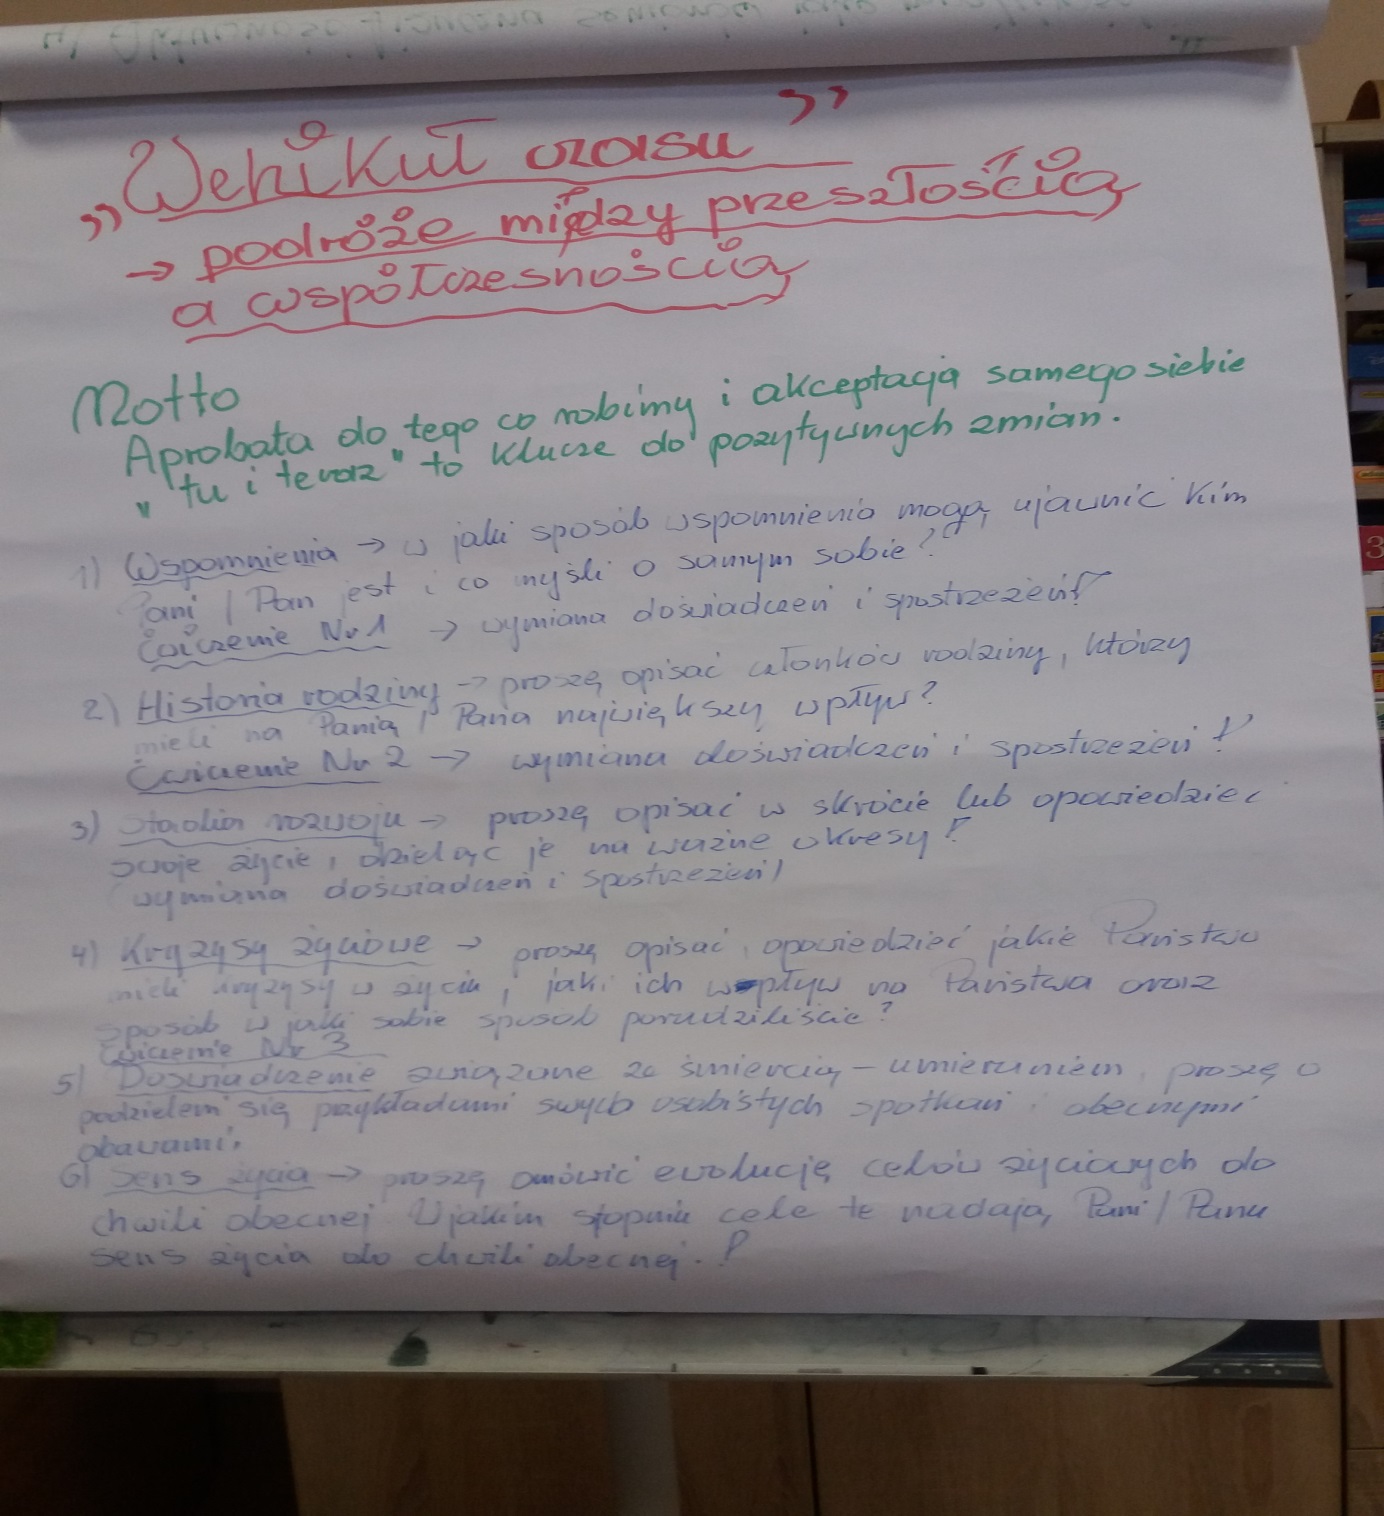 „Wehikuł czasu”
→ podróże między przeszłością
a współczesnością
Motto
Aprobata do tego co robimy i akceptacja samego siebie
"tu i teraz" to klucze do pozytywnych zmian.
1) Wspomnienia → w jaki sposób wspomnienia mogą ujawnić kim
Pani / Pan jest i co myśli o samym sobie?
Ćwiczenie Nr 1 → wymiana doświadczeń i spostrzeżeń!
2) Historia rodziny → proszę opisać członków rodziny, którzy
mieli na Panią / Pana największy wpływ?
Ćwiczenie Nr 2 → wymiana doświadczeń i spostrzeżeń!
3) Stadia rozwoju → proszę opisać w skrócie lub opowiedzieć
swoje życie, dzieląc je na ważne okresy!
(wymiana doświadczeń i spostrzeżeń)
4) Kryzysy życiowe → proszę opisać, opowiedzieć jakie Państwo
mieli kryzysy w życiu, jaki ich wpływ na Państwa oraz
sposób w jaki sobie sposób poradziliście?
Ćwiczenie Nr 3
5) Doświadczenie związane ze śmiercią - umieraniem, proszę o
podzielem się przykładami swych osobistych spotkań i obecnymi
obawami.
6) Sens życia → proszę omówić ewolucję celów życiowych do
chwili obecnej W jakim stopniu cele te nadają Pani / Panu
sens życia do chwili obecnej.?